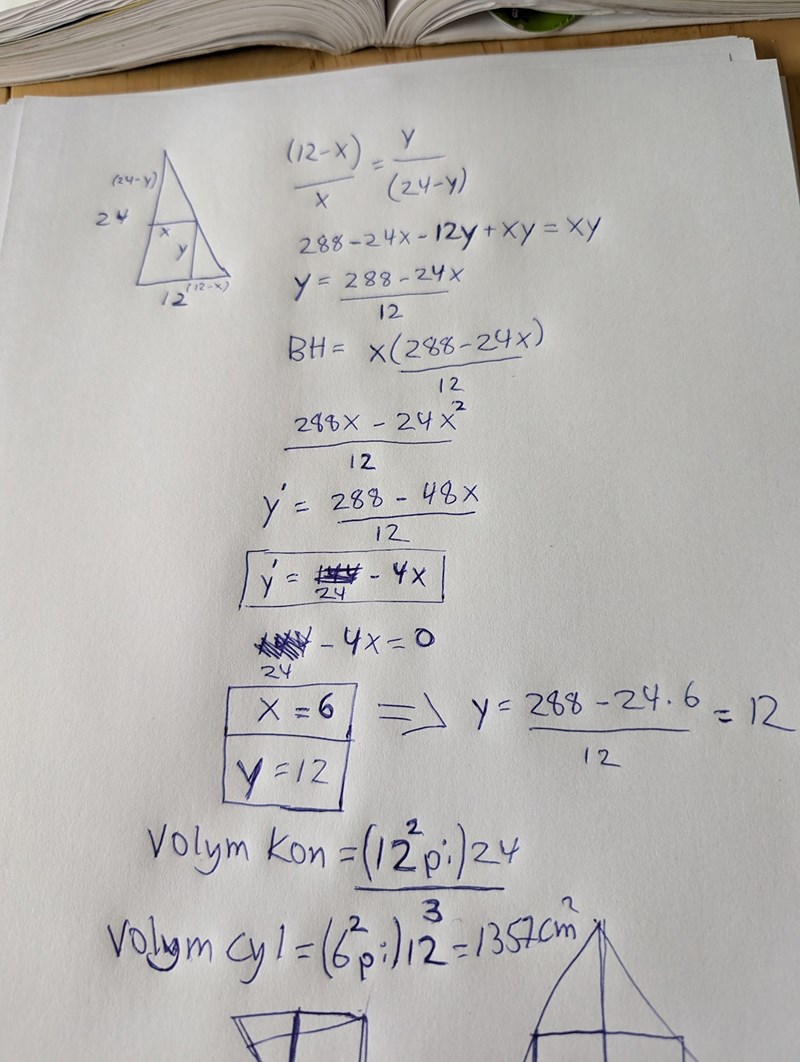 (24-y)
24
x
y
12 (12-x)
(12-x)/x = y/(24-y)
288-24x-12y+xy=xy
y = (288-24x)/12
BH= x(288-24x)/12
(288x - 24x²)/12
y' = (288 - 48x)/12
y' = 24 - 4x
24 - 4x = 0
x = 6 ⟹ y = (288-24·6)/12 = 12
y = 12
Volym Kon = (12²pi)24/3
Volym cyl = (6²pi)12 = 1357cm²